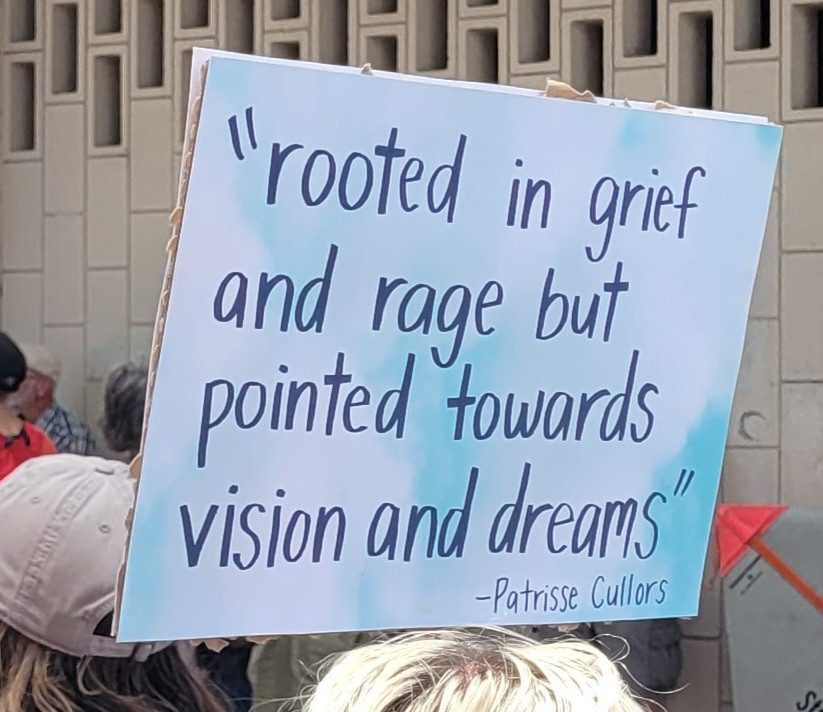 "rooted in grief
and rage but
pointed towards
vision and dreams"
-Patrisse Cullors